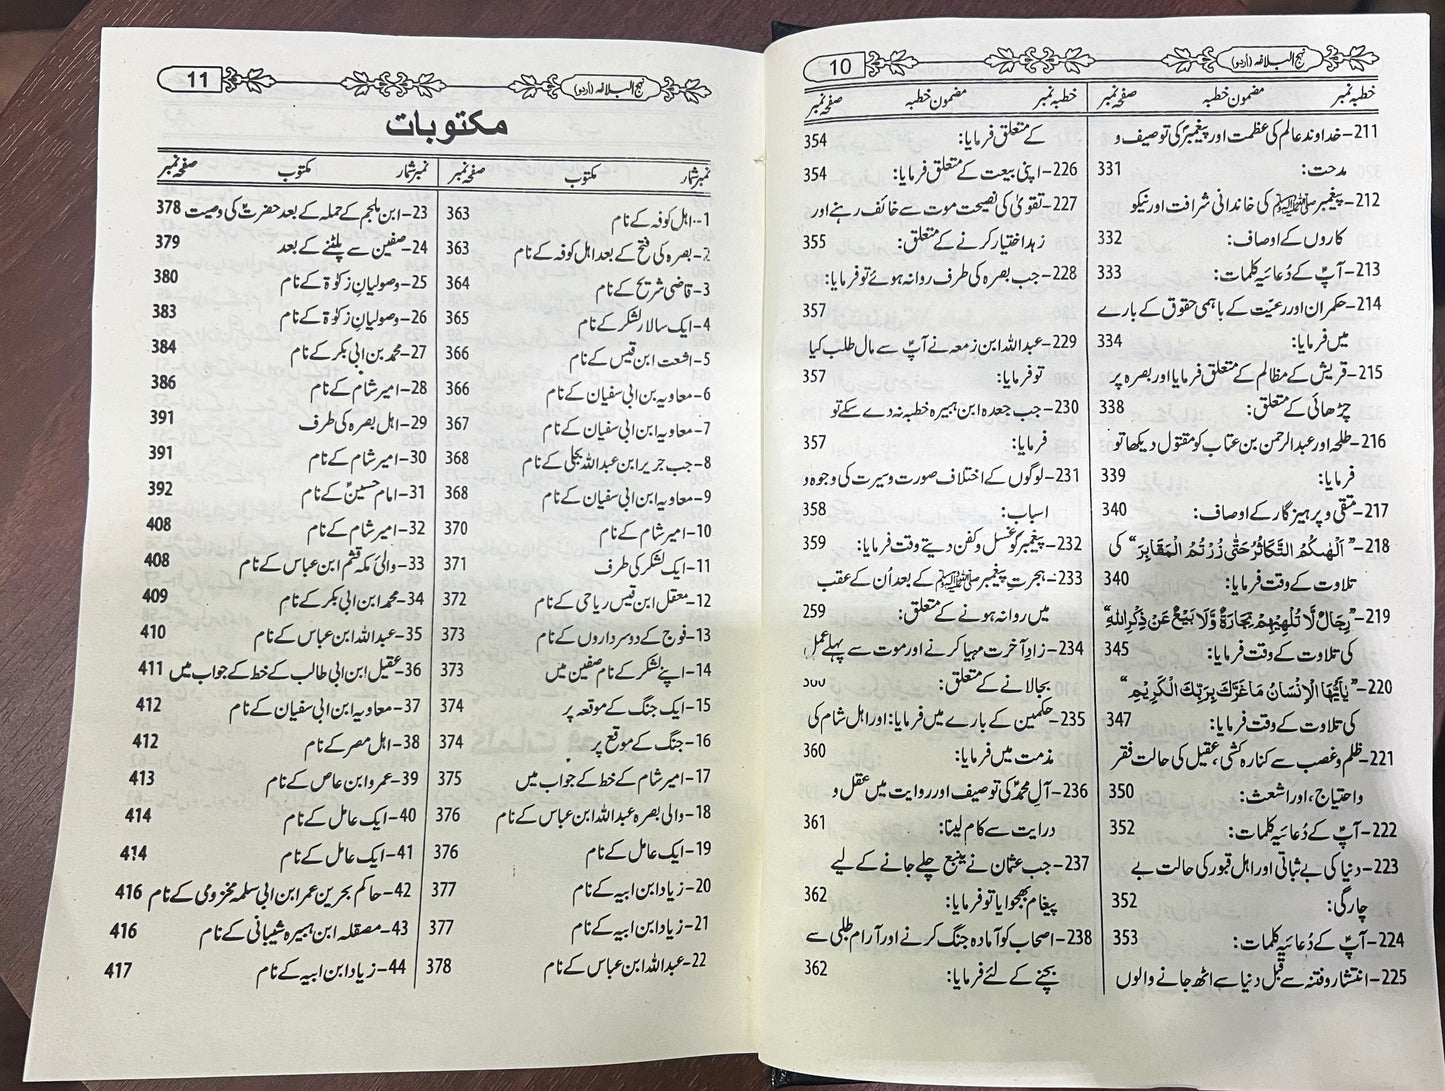 10
نہج البلاغہ (اُردو)
خطبہ نمبر مضمون خطبہ صفحہ نمبر
211- خداوند عالم کی عظمت اور پیغمبرؐ کی توصیف و
مدحت: 331
212- پیغمبر ﷺ کی خاندانی شرافت اور نیکو
کاروں کے اوصاف: 332
213- آپؑ کے دُعائیہ کلمات: 333
214- حکمران اور رعیّت کے باہمی حقوق کے بارے
میں فرمایا: 334
215- قریش کے مظالم کے متعلق فرمایا اور بصرہ پر
چڑھائی کے متعلق: 338
216- طلحہ اور عبدالرحمن بن عتاب کو مقتول دیکھا تو
فرمایا: 339
217- متقی و پرہیزگار کے اوصاف: 340
218- ”اَلْهٰىكُمُ التَّكَاثُرُ حَتّٰى زُرْتُمُ الْمَقَابِرَ“ کی
تلاوت کے وقت فرمایا: 340
219- ”رِجَالٌ لَّا تُلْهِيْهِمْ تِجَارَةٌ وَّلَا بَيْعٌ عَنْ ذِكْرِ اللّٰهِ“
کی تلاوت کے وقت فرمایا: 345
220- ”يٰٓاَيُّهَا الْاِنْسَانُ مَا غَرَّكَ بِرَبِّكَ الْكَرِيْمِ“
کی تلاوت کے وقت فرمایا: 347
221- ظلم و غصب سے کنارہ کشی، عقیل کی حالت فقر
و احتیاج، اور اشعث: 350
222- آپؑ کے دُعائیہ کلمات: 352
223- دنیا کی بے ثباتی اور اہل قبور کی حالت بے
چارگی: 352
224- آپؑ کے دُعائیہ کلمات: 353
225- انتشار و فتنہ سے قبل دنیا سے اٹھ جانے والوں
خطبہ نمبر مضمون خطبہ صفحہ نمبر
کے متعلق فرمایا: 354
226- اپنی بیعت کے متعلق فرمایا: 354
227- تقویٰ کی نصیحت موت سے خائف رہنے اور
زہد اختیار کرنے کے متعلق: 355
228- جب بصرہ کی طرف روانہ ہوئے تو فرمایا:
357
229- عبداللہ ابن زمعہ نے آپؑ سے مال طلب کیا
تو فرمایا: 357
230- جب جعدہ ابن ہبیرہ خطبہ نہ دے سکے تو
فرمایا: 357
231- لوگوں کے اختلاف صورت و سیرت کی وجوہ و
اسباب: 358
232- پیغمبرؐ کو غسل و کفن دیتے وقت فرمایا: 359
233- ہجرتِ پیغمبر ﷺ کے بعد اُن کے عقب
میں روانہ ہونے کے متعلق: 259
234- زادِ آخرت مہیا کرنے اور موت سے پہلے عمل
بجالانے کے متعلق:
235- حکمین کے بارے میں فرمایا: اور اہل شام کی
مذمت میں فرمایا: 360
236- آلِ محمدؐ کی توصیف اور روایت میں عقل و
درایت سے کام لینا: 361
237- جب عثمان نے ینبع چلے جانے کے لیے
پیغام بھجوایا تو فرمایا: 362
238- اصحاب کو آمادہ جنگ کرنے اور آرام طلبی سے
بچنے کے لئے فرمایا: 362
11
نہج البلاغہ (اُردو)
مکتوبات
نمبر شمار مکتوب صفحہ نمبر
1- اہل کوفہ کے نام 363
2- بصرہ کی فتح کے بعد اہل کوفہ کے نام 363
3- قاضی شریح کے نام 364
4- ایک سالار لشکر کے نام 365
5- اشعث ابن قیس کے نام 366
6- معاویہ بن ابی سفیان کے نام 366
7- معاویہ ابن ابی سفیان کے نام 367
8- جب جریر ابن عبداللہ بجلی کے نام 368
9- معاویہ ابن ابی سفیان کے نام 368
10- امیر شام کے نام 370
11- ایک لشکر کی طرف 371
12- معقل ابن قیس ریاحی کے نام 372
13- فوج کے دو سرداروں کے نام 373
14- اپنے لشکر کے نام صفین میں 373
15- ایک جنگ کے موقعہ پر 374
16- جنگ کے موقع پر 374
17- امیر شام کے خط کے جواب میں 375
18- والی بصرہ عبداللہ ابن عباس کے نام 376
19- ایک عامل کے نام 376
20- زیاد ابن ابیہ کے نام 377
21- زیاد ابن ابیہ کے نام 377
22- عبداللہ ابن عباس کے نام 378
نمبر شمار مکتوب صفحہ نمبر
23- ابن ملجم کے حملہ کے بعد حضرتؑ کی وصیت 378
24- صفین سے پلٹنے کے بعد 379
25- وصولیانِ زکوٰۃ کے نام 380
26- وصولیانِ زکوٰۃ کے نام 383
27- محمد بن ابی بکر کے نام 384
28- امیر شام کے نام 386
29- اہل بصرہ کی طرف 391
30- امیر شام کے نام 391
31- امام حسینؑ کے نام 392
32- امیر شام کے نام 408
33- والیٔ مکہ قثم ابن عباس کے نام 408
34- محمد ابن ابی بکر کے نام 409
35- عبداللہ ابن عباس کے نام 410
36- عقیل ابن ابی طالب کے خط کے جواب میں 411
37- معاویہ ابن ابی سفیان کے نام 412
38- اہل مصر کے نام 412
39- عمرو ابن عاص کے نام 413
40- ایک عامل کے نام 414
41- ایک عامل کے نام 414
42- حاکم بحرین عمر ابن ابی سلمہ مخزومی کے نام 416
43- مصقلہ ابن ہبیرہ شیبانی کے نام 416
44- زیاد ابن ابیہ کے نام 417